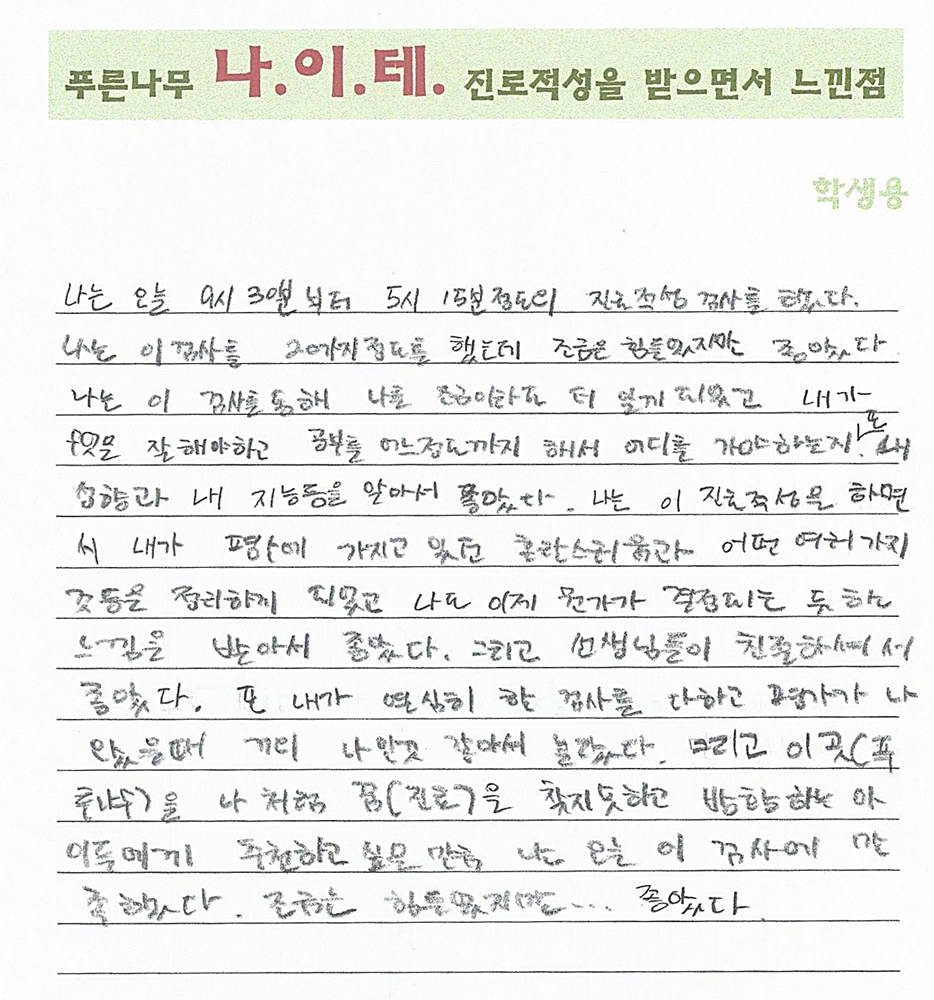 푸른나무 나.이.테. 진로적성을 받으면서 느낀점
학생용
나는 오늘 9시 30분부터 5시 15분정도의 진로적성 검사를 했다.
나는 이 검사를 20가지정도를 했는데 조금은 힘들었지만 좋았다
나는 이 검사를 통해 나를 조금이라도 더 알게 되었고 내가
무엇을 잘해야하고 공부를 어느정도까지 해서 어디를 가야하는지. 또 내
성향과 내 지능등을 알아서 좋았다. 나는 이 진로적성을 하면
서 내가 평소에 가지고 있던 혼란스러움과 어떤 여러가지
것 등을 정리하게 되었고 나도 이제 뭔가가 결정되는 듯 하는
느낌을 받아서 좋았다. 그리고 선생님들이 친절하셔서
좋았다. 또 내가 열심히 한 검사를 다하고 평가가 나
왔을때 거의 나만큼 잘아셔 놀랐다. 그리고 이곳(푸
른나무)을 나 처럼 꿈(진로)을 찾지못하고 방황하는 아
이들에게 추천하고 싶은 만큼 나는 오늘 이 검사에 만
족했다. 조금은 힘들었지만... 좋았다.